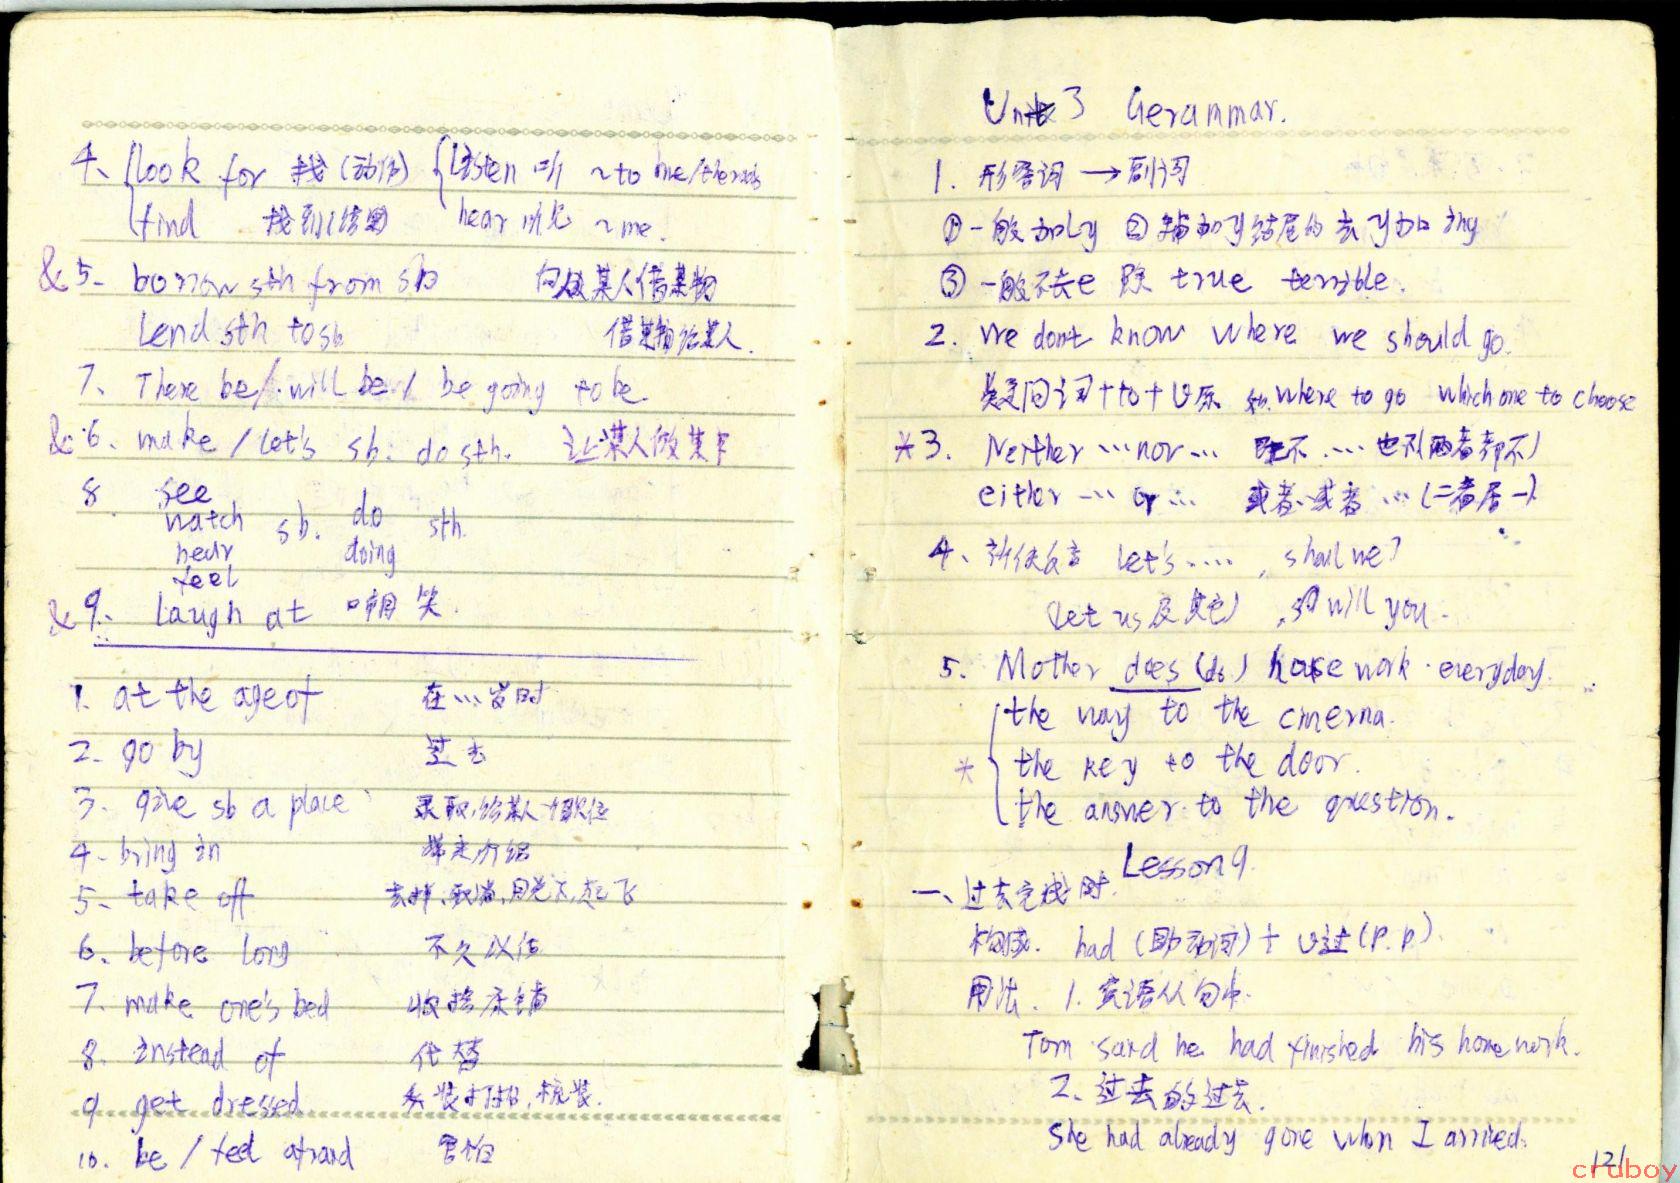 4、look for 找(动作) listen 听 ~to me/the radio
find 找到(结果) hear 听见 ~me.
& 5. borrow sth from sb 向某人借某物
lend sth to sb 借某物给某人.
7、There be / will be / be going to be.
& 6. make / let's sb. do sth. 让某人做某事
8. see
watch sb. do sth.
hear doing
feel
& 9、laugh at 嘲笑.
1. at the age of 在…岁时
2. go by 过去
3. give sb a place 录取,给某人一个职位
4. bring in
5、take off 起飞
6. before long 不久以后
7. make one's bed 收拾床铺
8. instead of 代替
9 get dressed 打扮,梳装.
10. be / feel afraid 害怕
Unit 3 Gerammar.
1. 形容词 → 副词
① 一般加ly ② 结尾的去y加
③ 一般不去e 除 true terrible.
2. We don't know where we should go.
疑问词+to+V原 如.where to go which one to choose
*3. Neither …nor… 既不…也不(两者都不)
either … or … 或者、或者…(二者居一)
4、祈使句 let's……, shall we?
(let us 及其它) , will you.
5. Mother does (do) house work everyday.
the way to the cinema.
* the key to the door.
the answer to the question.
Lesson 9.
一、过去完成时.
构成. had (助动词)+ V过(P.P)
用法. 1. 宾语从句中.
Tom said he had finished his home work.
2. 过去的过去.
She had already gone when I arrived.
121
cruboy